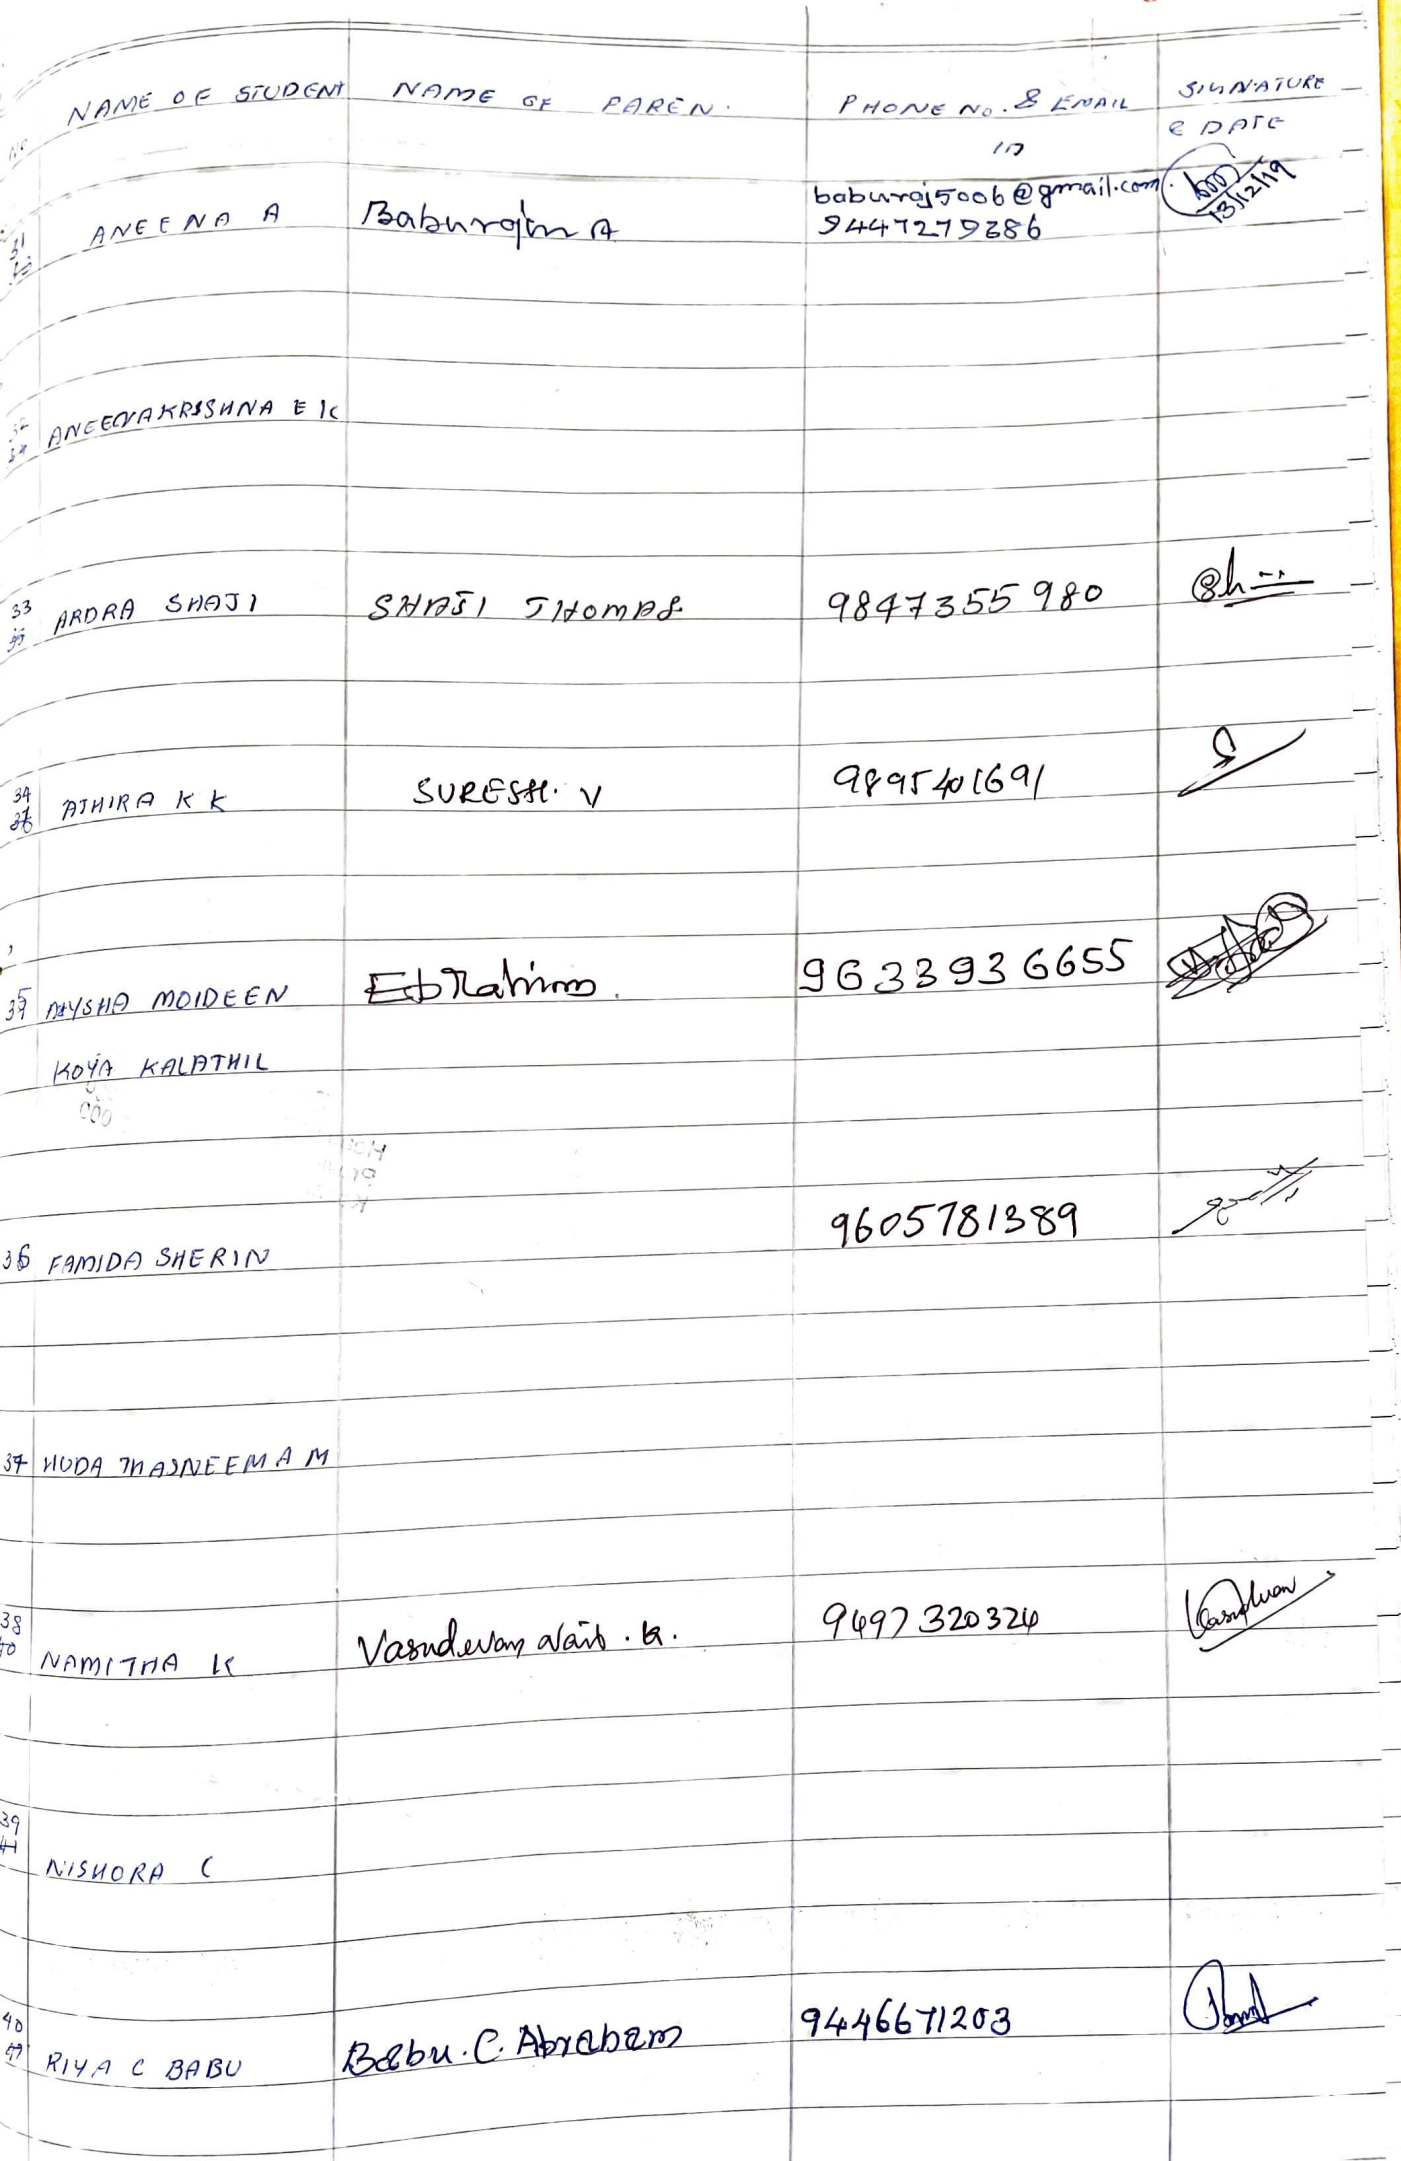 NAME OF STUDENT NAME OF PAREN. PHONE No. & EMAIL SIGNATURE
NO ID & DATE
baburaj5006@gmail.com
31 ANEENA A Baburajan A 9447279286 13/12/19
32 ANEENAKRISHNA E K
33 ARDRA SHAJI SHAJI THOMAS 9847355980 Sh
34 ATHIRA K K SURESH. V 9895401691 S
35 AAYSHA MOIDEEN Ebrahim. 9633936655
KOYA KALATHIL
36 FAMIDA SHERIN 9605781389
37 HUDA THASNEEM A M
38 NAMITHA K Vasudevan Nair. K. 9497320324 Vasudevan
39
41 NISHORA C
40 RIYA C BABU Babu. C. Abraham 9446671203